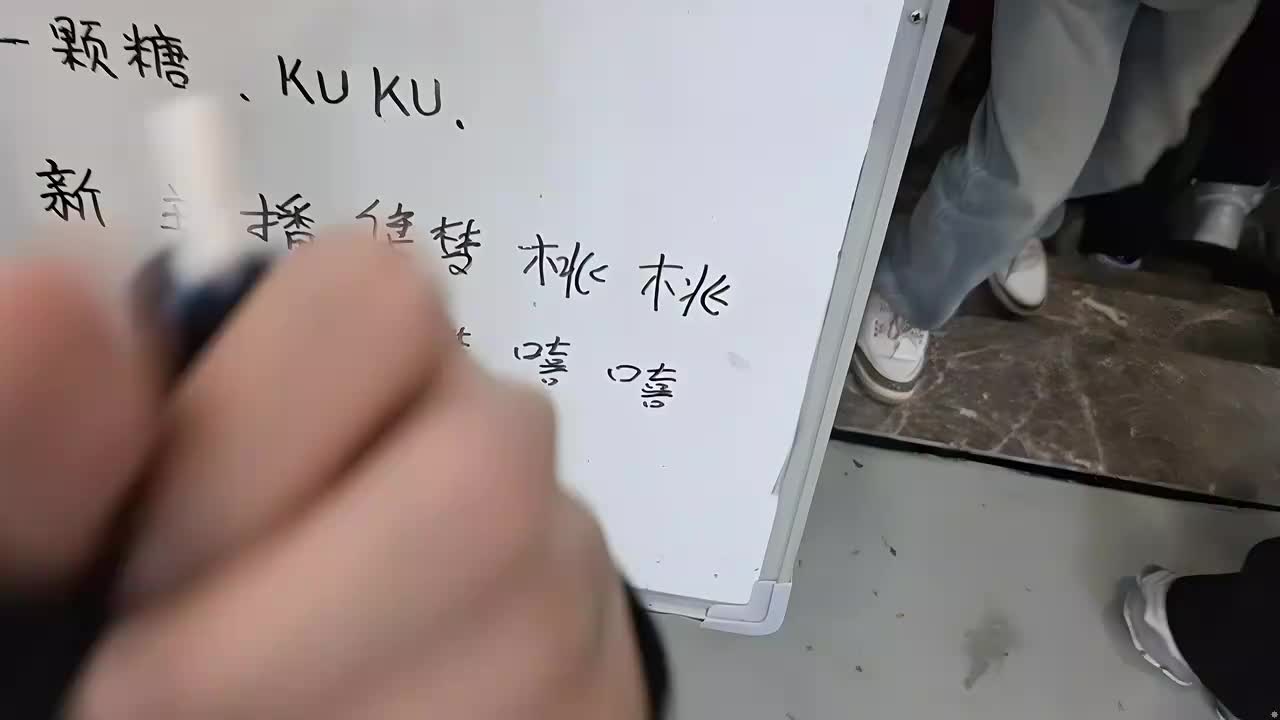 一颗糖、KUKU、
新主播 楚桃桃
嘻嘻